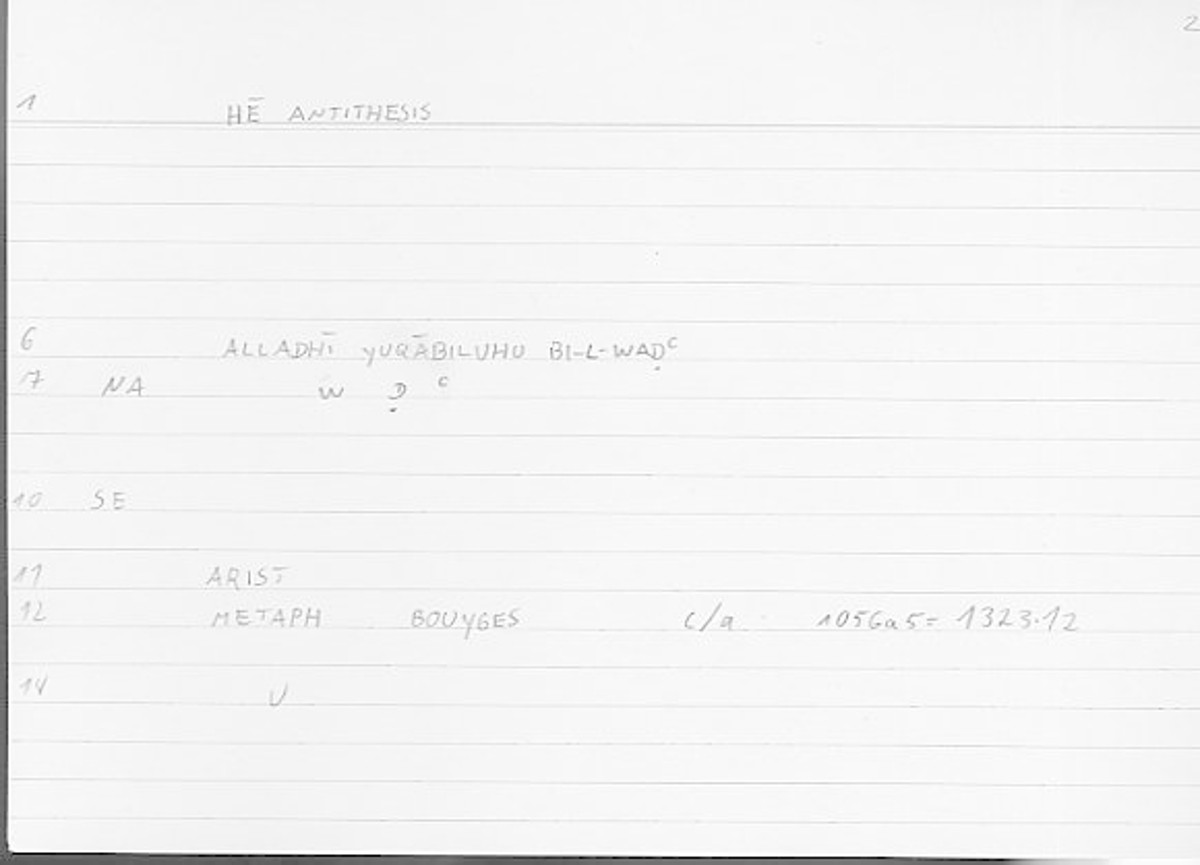 2
1 HĒ ANTITHESIS
6 ALLADHĪ YUQĀBILUHU BI-L-WAḌᶜ
7 NA W Ḍ ᶜ
10 SE
11 ARIST
12 METAPH BOUYGES C/a 1056a5= 1323.12
14 U